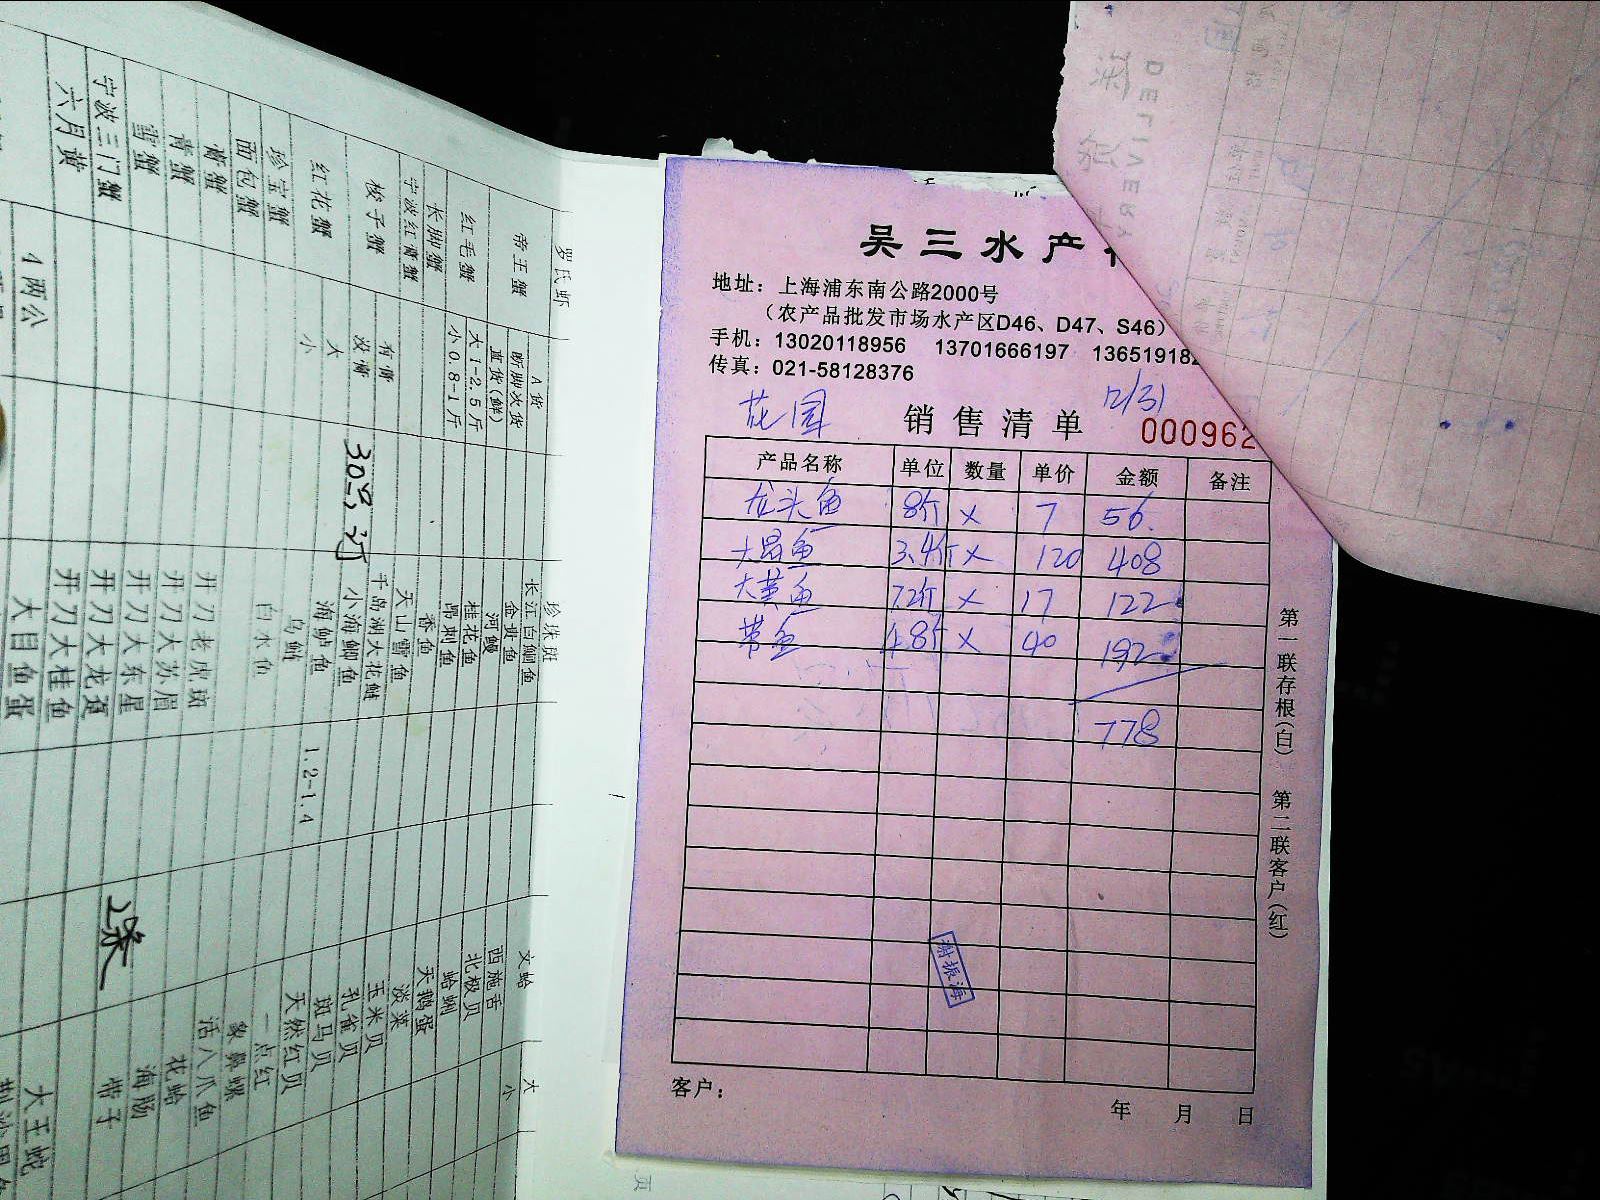 吴三水产
地址：上海浦东南公路2000号
（农产品批发市场水产区D46、D47、S46）
手机：13020118956 13701666197 136519182
传真：021-58128376
花园 销售清单 12/31
000962
产品名称 单位 数量 单价 金额 备注
龙头鱼 8斤 × 7 56.
大昌鱼 3.4斤 × 120 408
大黄鱼 7.2斤 × 17 122
带鱼 4.8斤 × 40 192
778
谢振海
客户：
年 月 日
第一联存根(白) 第二联客户(红)
DELIVERY
罗氏虾
帝王蟹 A货
断脚次货
直货(鲜)
红毛蟹 大1-2.5斤
小0.8-1斤
长脚蟹
宁波红膏蟹
梭子蟹 有膏
没膏
红花蟹 大
小
珍宝蟹
面包蟹
膏蟹
青蟹
雷蟹
宁波三门蟹
六月黄
4两公
30只
珍珠斑
长江白鮰鱼
金黄鱼
河鳗
桂花鱼
昂刺鱼
香鱼
天山雪鱼
千岛湖大花鲢
小海鲫鱼
海鲈鱼
乌鲥 1.2-1.4
白水鱼
开刀老虎斑
开刀大苏眉
开刀大东星
开刀大龙趸
开刀大桂鱼
大目鱼蛋
2条
文蛤 大
小
西施舌
北极贝
蛤蜊
天鹅蛋
淡菜
玉米贝
孔雀贝
斑马贝
天然红贝
一点红
象鼻螺
活八爪鱼
花蛤
海肠
带子
大王蛇
页